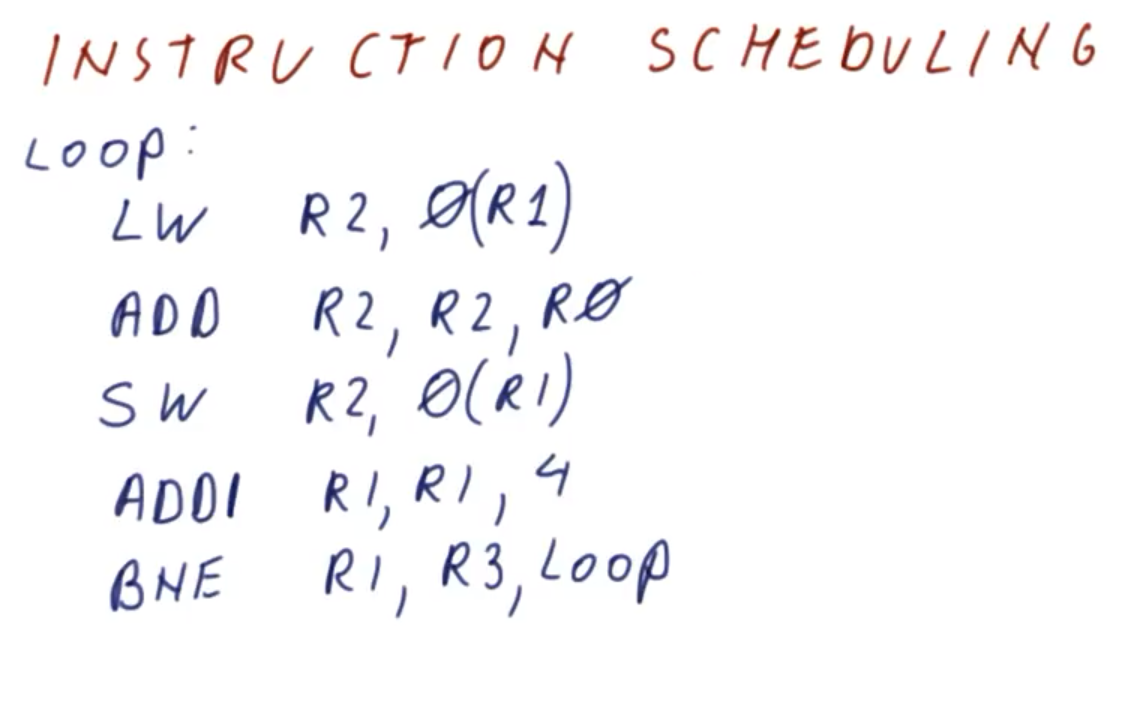 INSTRUCTION SCHEDULING
LOOP:
LW R2, Ø(R1)
ADD R2, R2, RØ
SW R2, Ø(R1)
ADDI R1, R1, 4
BNE R1, R3, LOOP